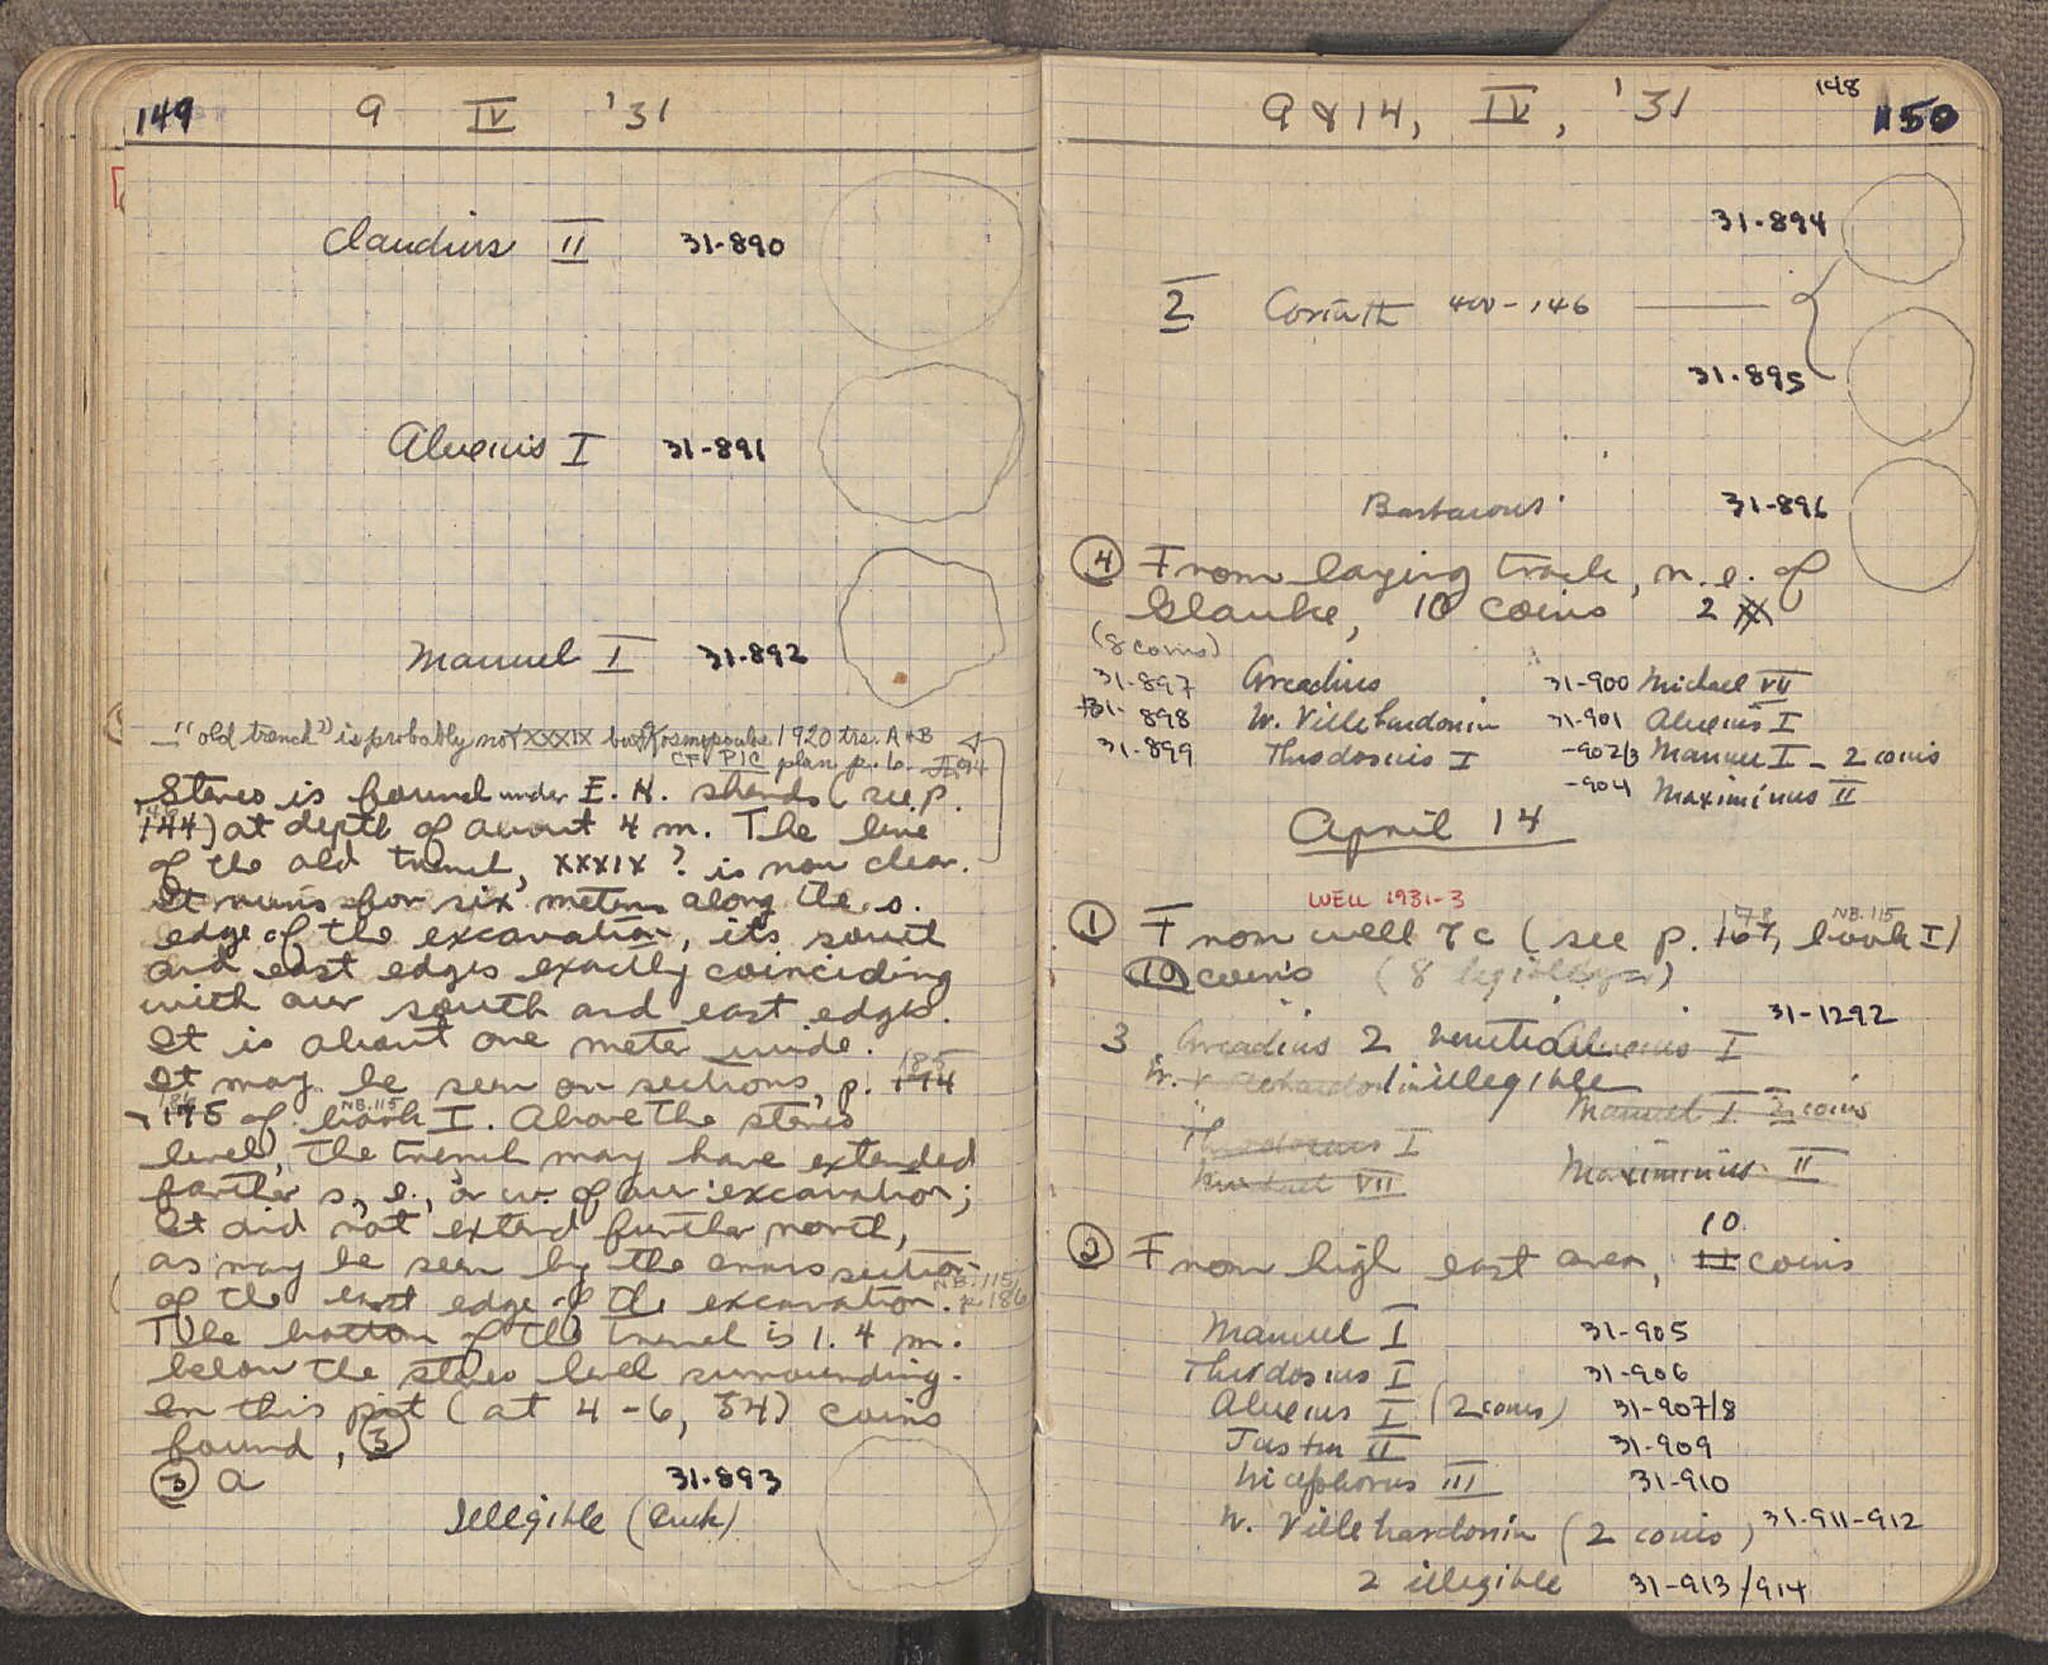 149 9 IV '31
Claudius II 31-890
Alexius I 31-891
Manuel I 31-892
"old trench" is probably not XXXIX but Kosmopoulos 1920 trs. A+B
CF PIC plan p. 6.
Stereo is found under E. H. sherds (see p.
144) at depth of about 4 m. The line
of the old trench, XXXIX? is now clear.
It runs for six meters along the s.
edge of the excavation, its south
and east edges exactly coinciding
with our south and east edges.
It is about one meter wide.
185
It may be seen on sections, p. 174
186 NB. 115
175 of book I. Above the stereo
level, the trench may have extended
farther s., e., or w. of our excavation;
It did not extend further north,
as may be seen by the cross section
NB. 115,
of the east edge of the excavation. p. 186
The bottom of the trench is 1.4 m.
below the stereo level surrounding.
In this pit (at 4-6, 34) coins
found, 3
3 a 31-893
Illegible (Greek)
148
9 & 14, IV, '31 150
31-894
2 Corinth 400-146
31-895
Barbarous 31-896
4 From laying track, n. e. of
Glauke, 10 coins 2
(8 coins)
31-897 Arcadius 31-900 Michael VII
31-898 W. Villehardouin 31-901 Alexius I
31-899 Theodosius I -902/3 Manuel I - 2 coins
-904 Maximinus II
April 14
WELL 1931-3
NB. 115
1 From well 7c (see p. 167, book I)
10 coins (8 legible)
31-1292
3 Arcadius 2 Venetian Alexius I
W. Villehardouin 1 illegible
Manuel I 2 coins
Theodosius I
Michael VII Maximinus II
10
2 From high east area, 11 coins
Manuel I 31-905
Theodosius I 31-906
Alexius I (2 coins) 31-907/8
Justin II 31-909
Nicephorus III 31-910
W. Villehardouin (2 coins) 31-911-912
2 illegible 31-913/914